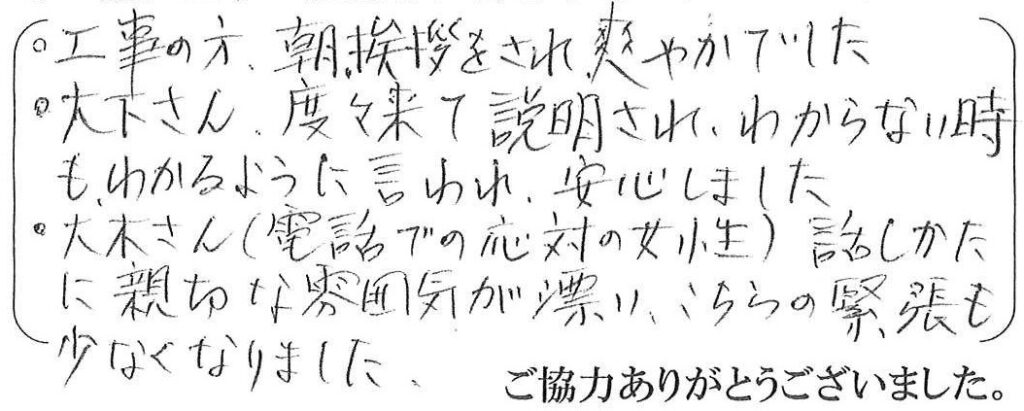 ○工事の方、朝、挨拶をされ、爽やかでした
○大下さん、度々来て説明され、わからない時
も、わかるように言われ、安心しました
・大木さん(電話での応対の女性)話しかた
に親切な雰囲気が漂い、こちらの緊張も
少なくなりました、
ご協力ありがとうございました。